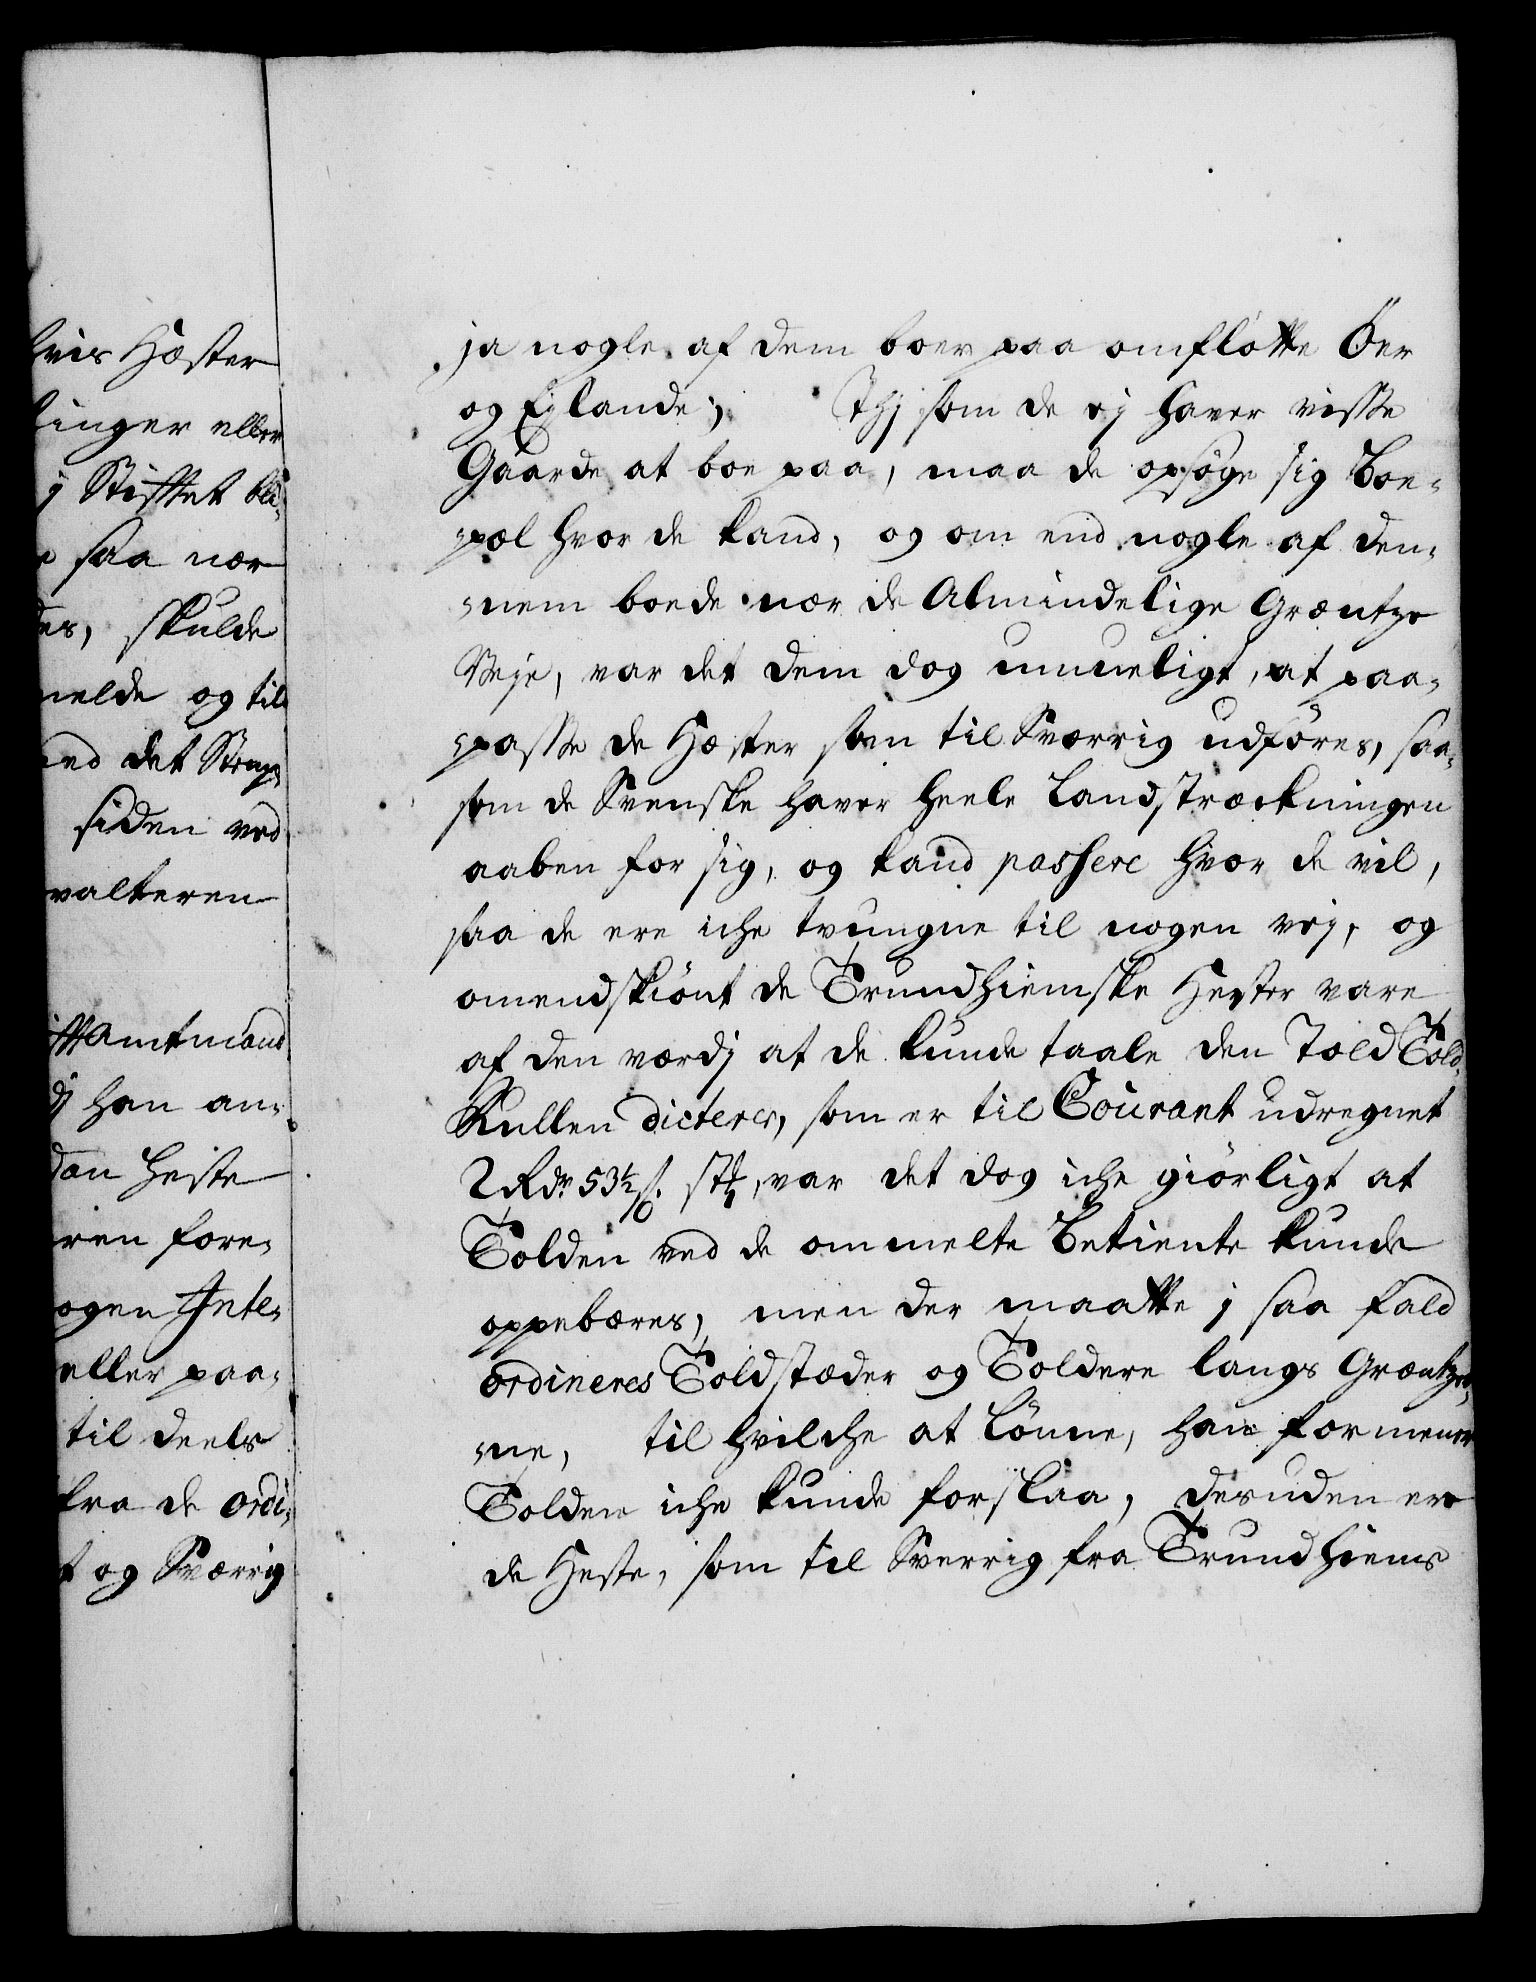 vis Hæster
linger eller
j Stifftet bli-
saa nær
des, skulde
melde og til
end det Stemp
siden ved
valteren
ifftAmtmand
dj han an-
dan heste
ren fore-
ogen Inte-
eller paa-
til deels
fra de ordi-
t og Sværrig
ja nogle af dem boer paa omflötte Öer
og Eylande; Thj som de ej haver visse
Gaarde at boe paa, maa de opsöge sig Boe-
pæl hvor de kand, og om end nogle af den-
nem boede nær de Almindelige Græntze
Veje, var det dem dog umueligt, at paa-
passe de Hæster som til Sværrig udföres, saa-
som de Svenske haver heele Landstræckningen
aaben for sig, og kand passere hvor de vil,
saa de ere iche tvungne til nogen vej, og
omendskiönt de Trundhiemske Hester vare
af den værdj at de kunde taale den Told Told-
Rullen dicterer, som er til Courant udregnet
2 Rdr 53½ s. st, var det dog iche giörligt at
Tolden ved de ommelte Betiente kunde
oppebæres, men der maatte j saa fald
ordineres Toldstæder og Toldere langs Græntzer-
ne, til hvilche at lönne, han formener
Tolden iche kunde forslaa, desuden ere
de Heste, som til Sverrig fra Trundhiems